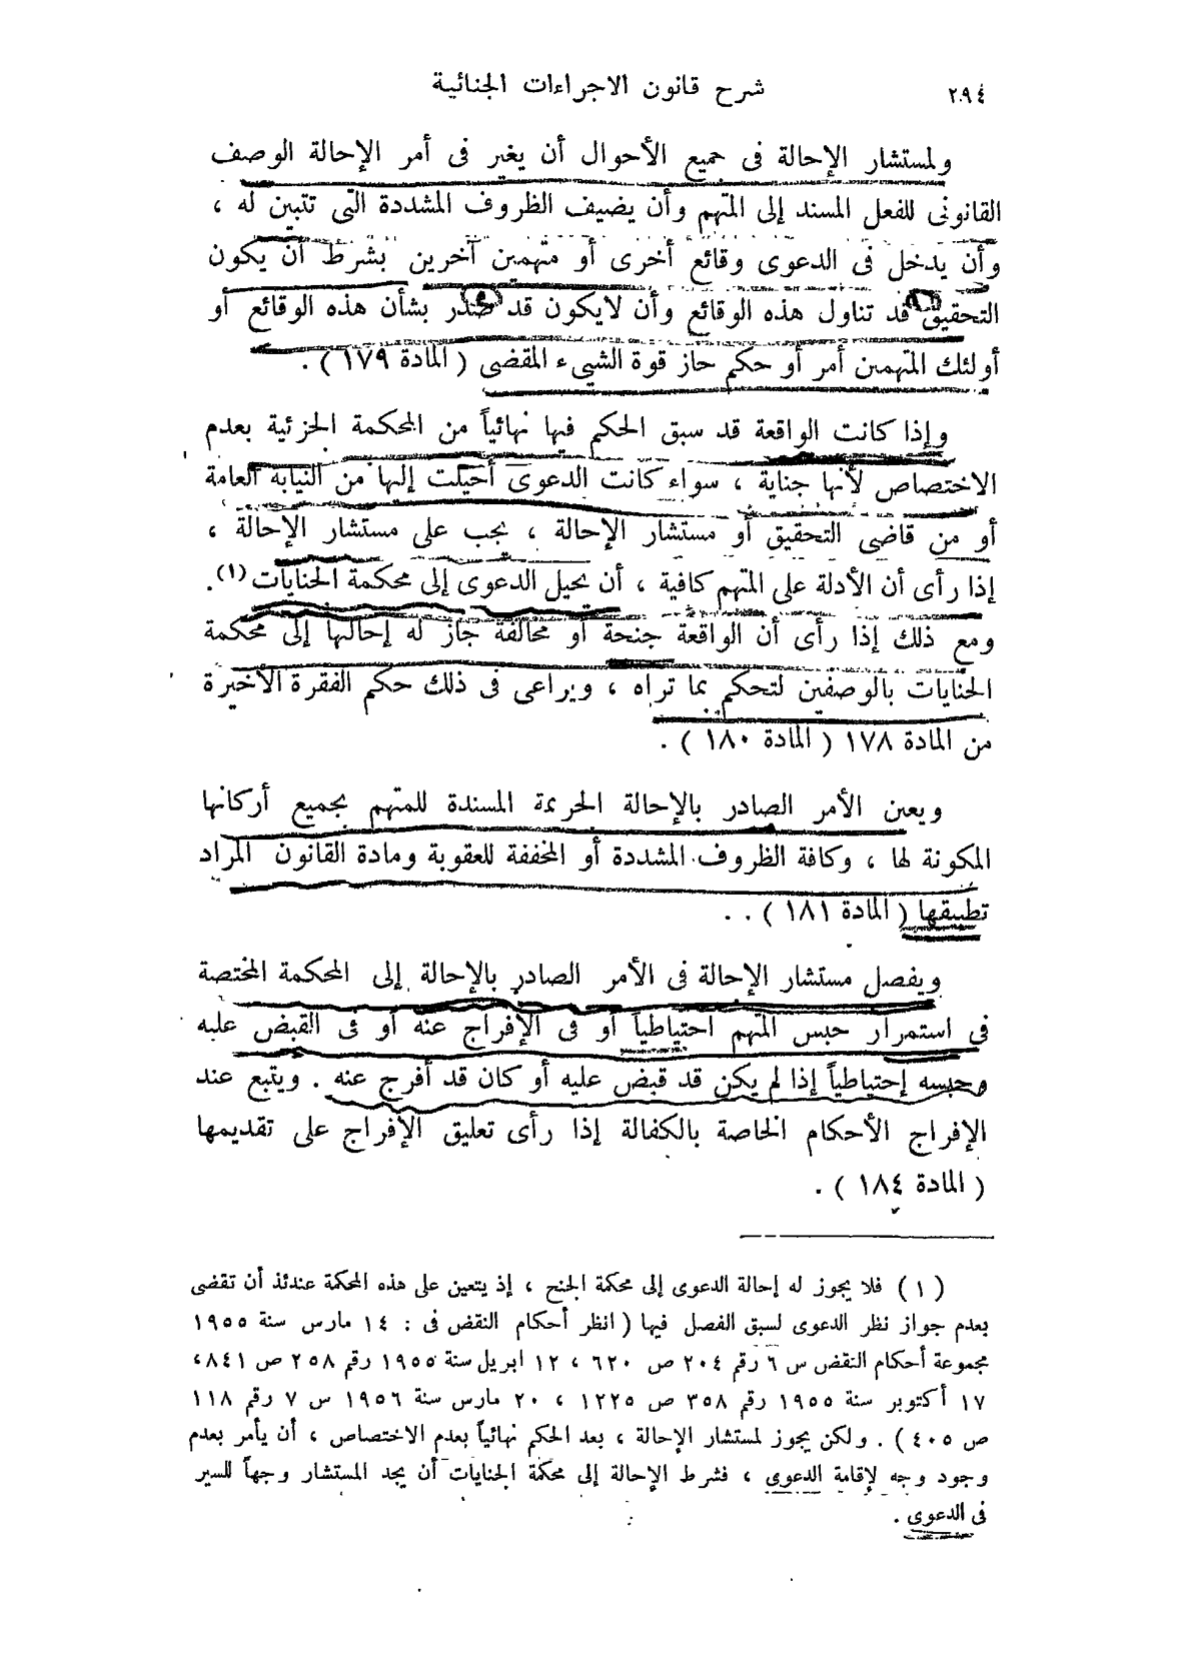 ٢٩٤ شرح قانون الاجراءات الجنائية
ولمستشار الإحالة فى جميع الأحوال أن يغير فى أمر الإحالة الوصف
القانونى للفعل المسند إلى المتهم وأن يضيف الظروف المشددة التى تتبين له ،
وأن يدخل فى الدعوى وقائع أخرى أو متهمين آخرين بشرط أن يكون
التحقيق قد تناول هذه الوقائع وأن لايكون قد صدر بشأن هذه الوقائع أو
أولئك المتهمين أمر أو حكم حاز قوة الشىء المقضى ( المادة ١٧٩ ) .
وإذا كانت الواقعة قد سبق الحكم فيها نهائياً من المحكمة الجزئية بعدم
الاختصاص لأنها جناية ، سواء كانت الدعوى أحيلت إليها من النيابة العامة
أو من قاضى التحقيق أو مستشار الإحالة ، يجب على مستشار الإحالة ،
إذا رأى أن الأدلة على المتهم كافية ، أن يحيل الدعوى إلى محكمة الجنايات (١).
ومع ذلك إذا رأى أن الواقعة جنحة أو مخالفة جاز له إحالتها إلى محكمة
الجنايات بالوصفين لتحكم بما تراه ، ويراعى فى ذلك حكم الفقرة الأخيرة
من المادة ١٧٨ ( المادة ١٨٠ ) .
ويعين الأمر الصادر بالإحالة الجريمة المسندة للمتهم بجميع أركانها
المكونة لها ، وكافة الظروف المشددة أو المخففة للعقوبة ومادة القانون المراد
تطبيقها ( المادة ١٨١ ) . .
ويفصل مستشار الإحالة فى الأمر الصادر بالإحالة إلى المحكمة المختصة
فى استمرار حبس المتهم احتياطياً أو فى الإفراج عنه أو فى القبض عليه
وحبسه إحتياطياً إذا لم يكن قد قبض عليه أو كان قد أفرج عنه . ويتبع عند
الإفراج الأحكام الخاصة بالكفالة إذا رأى تعليق الإفراج على تقديمها
( المادة ١٨٤ ) .
( ١ ) فلا يجوز له إحالة الدعوى إلى محكمة الجنح ، إذ يتعين على هذه المحكمة عندئذ أن تقضى
بعدم جواز نظر الدعوى لسبق الفصل فيها ( انظر أحكام النقض فى : ١٤ مارس سنة ١٩٥٥
مجموعة أحكام النقض س ٦ رقم ٢٠٤ ص ٦٢٠ ، ١٢ ابريل سنة ١٩٥٥ رقم ٢٥٨ ص ٨٤١ ،
١٧ أكتوبر سنة ١٩٥٥ رقم ٣٥٨ ص ١٢٢٥ ، ٢٠ مارس سنة ١٩٥٦ س ٧ رقم ١١٨
ص ٤٠٥ ) . ولكن يجوز لمستشار الإحالة ، بعد الحكم نهائياً بعدم الاختصاص ، أن يأمر بعدم
وجود وجه لإقامة الدعوى ، فشرط الإحالة إلى محكمة الجنايات أن يجد المستشار وجهاً للسير
فى الدعوى .